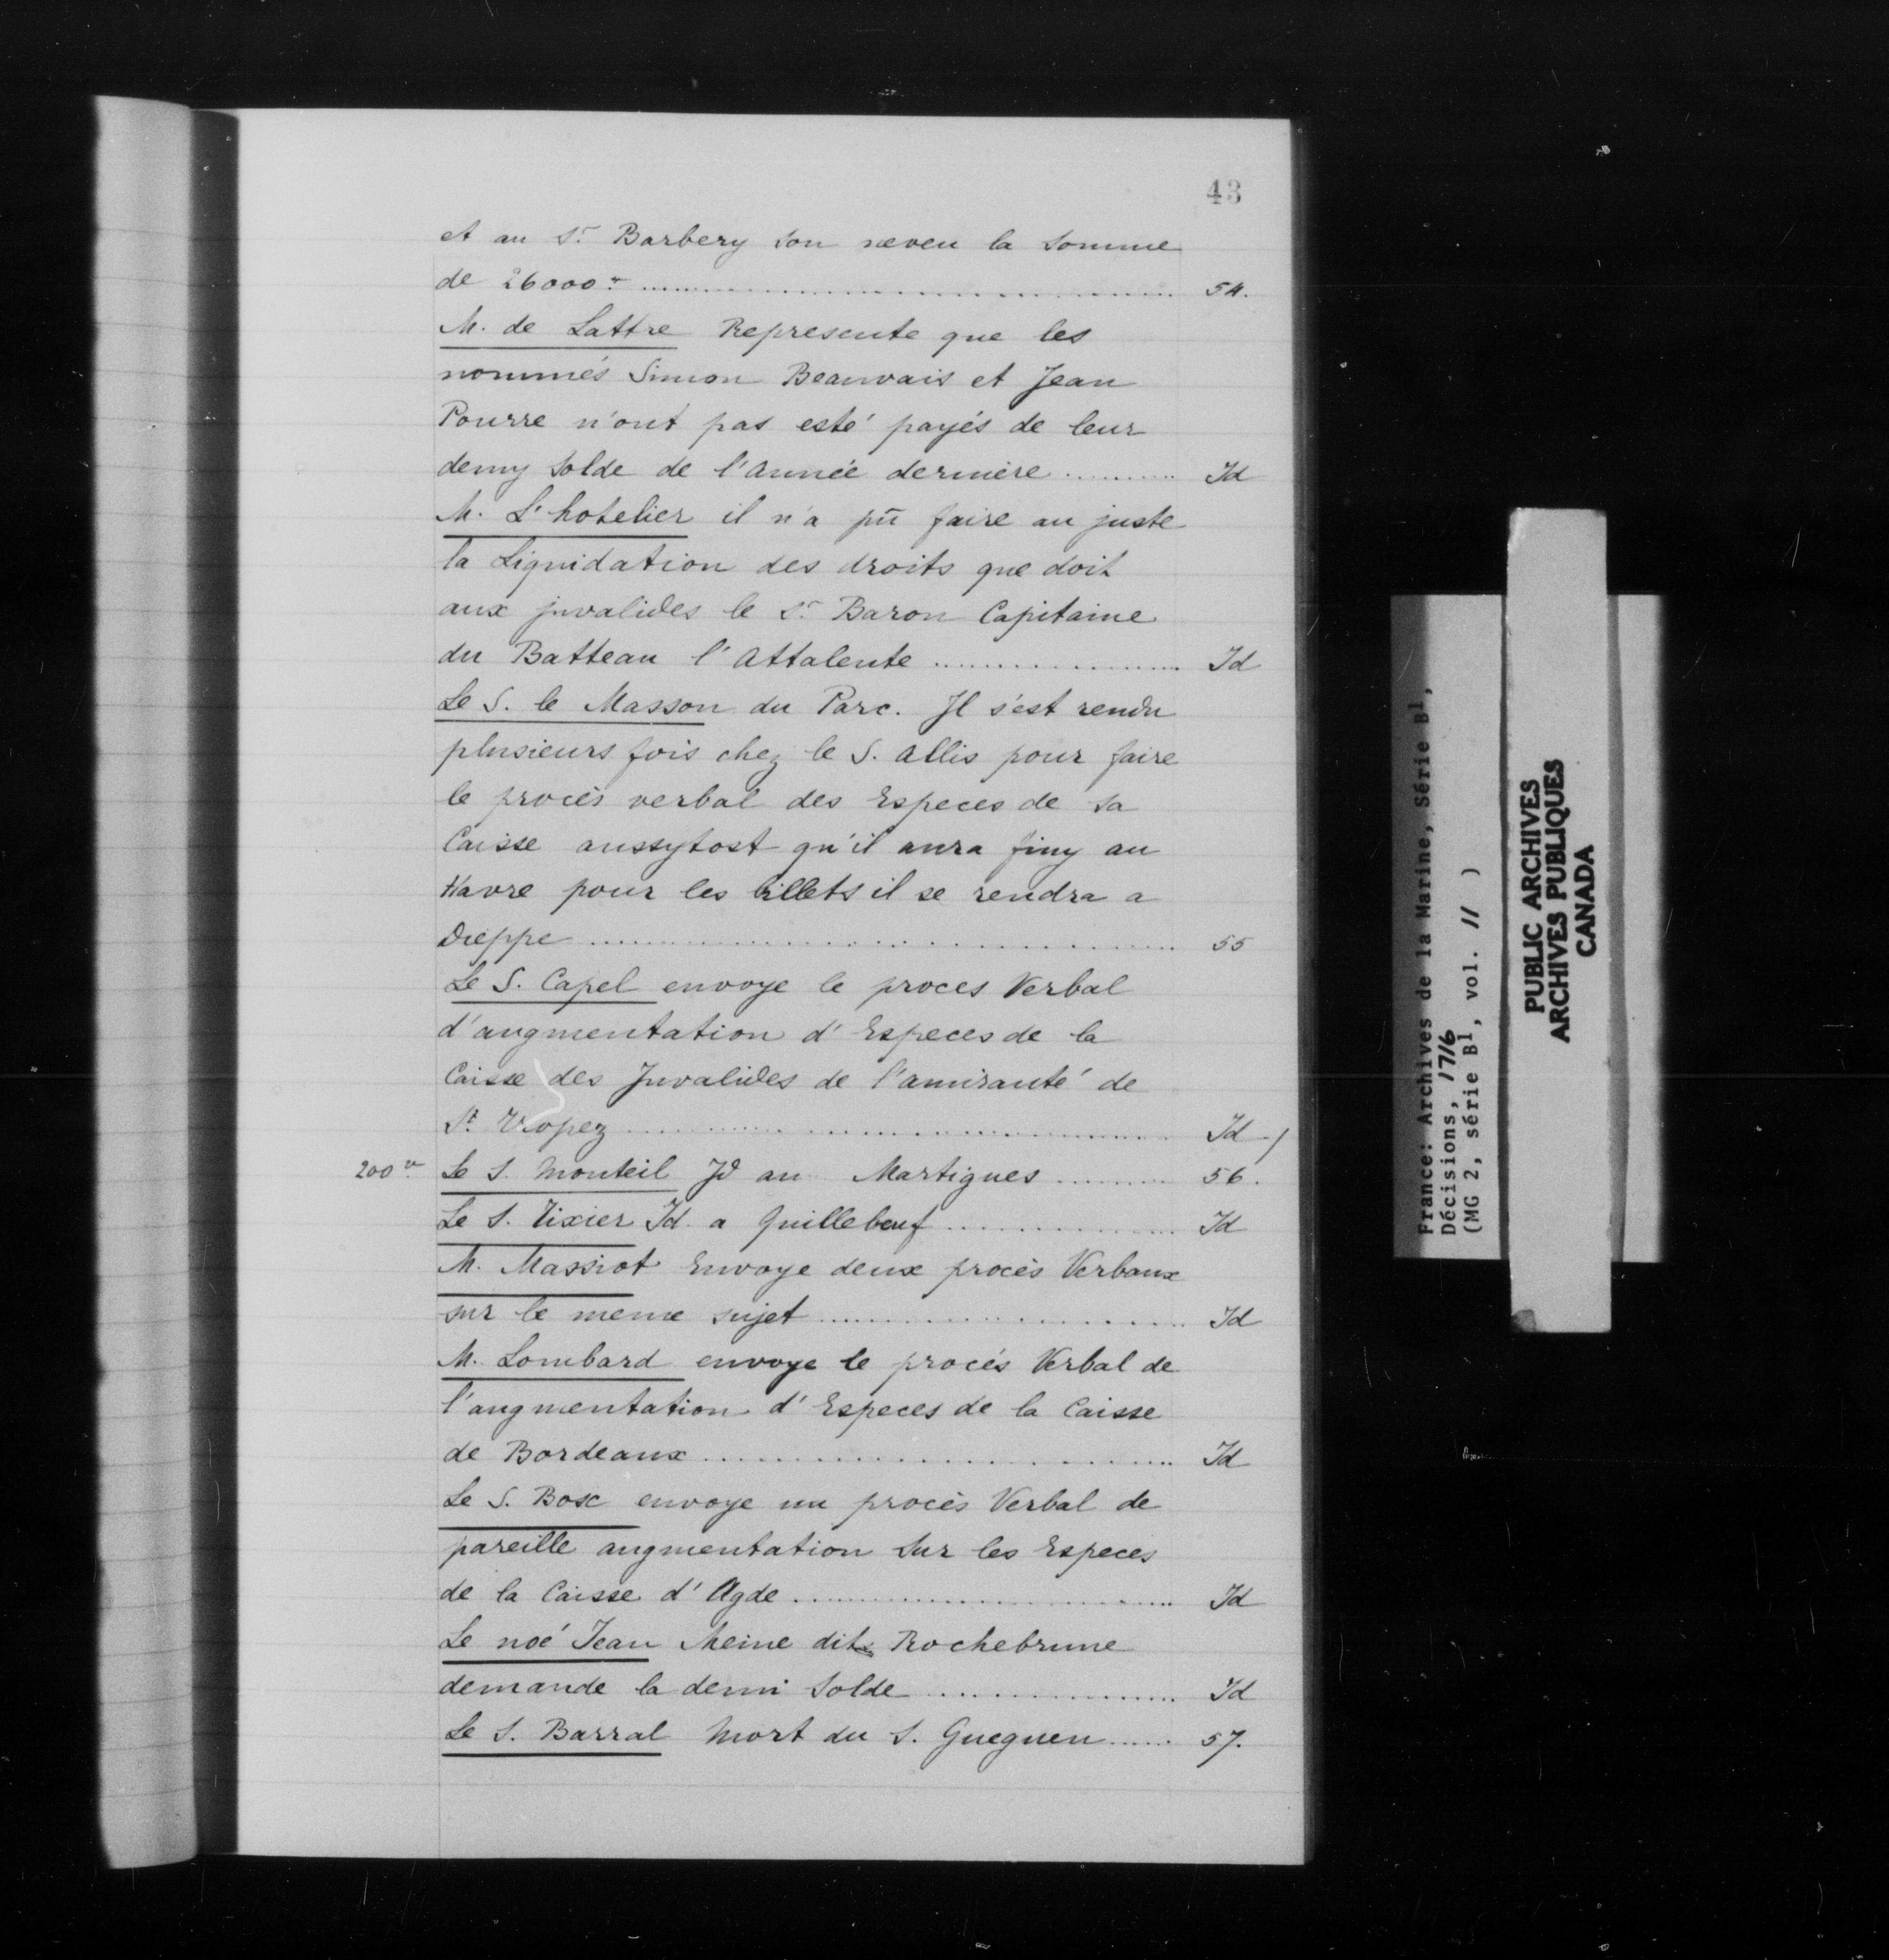 43
et au Sr. Barbery son neveu la somme
de 26000 .......... 54.
M. de Lattre Represente que les
nommés Simon Beauvais et Jean
Pourre n'ont pas esté payés de leur
demy solde de l'année dernière .......... Id
M. L'hotelier il n'a pû faire au juste
la Liquidation des droits que doit
aux jnvalides le Sr. Baron Capitaine
du Batteau l'Attalente .......... Id
Le S. le Masson du Parc. Jl s'est rendu
plusieurs fois chez le S. allis pour faire
le procès verbal des Especes de sa
Caisse aussytost qu'il aura finy au
Havre pour les billets il se rendra a
Dieppe .......... 55
Le S. Capel envoye le proces Verbal
d'augmentation d'Especes de la
Caisse des Jnvalides de l'amirauté de
St. Tropez .......... Id
200 Le S. Monteil Jd au Martigues .......... 56.
Le S. Tixier Id. a Quillebeuf .......... Id
M. Massiot Envoye deux procès Verbaux
sur le meme sujet .......... Id
M. Lombard envoye le procès Verbal de
l'augmentation d'Especes de la Caisse
de Bordeaux .......... Id
Le S. Bosc envoye un procès Verbal de
pareille augmentation sur les Especes
de la Caisse d'Agde .......... Id
Le noé Jean Meine dit Rochebrune
demande la demi solde .......... Id
Le S. Barral Mort du S. Gueguen ...... 57.
France: Archives de la Marine, Série B1,
Décisions, 1716
(MG 2, série B1, vol. 11 )
PUBLIC ARCHIVES
ARCHIVES PUBLIQUES
CANADA